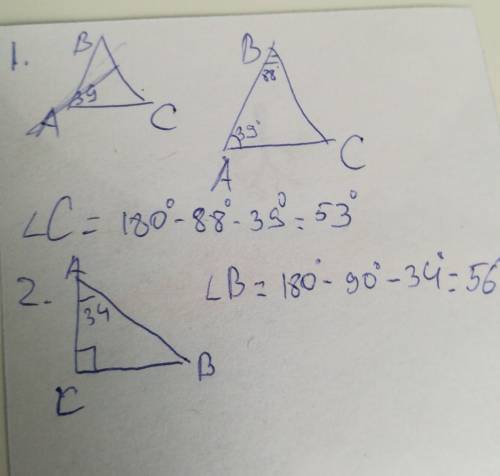 1.
B
39
A
C
B
88
39°
A
C
∠C = 180° - 88° - 39° = 53°
2.
A
34
C
B
∠B = 180° - 90° - 34° = 56